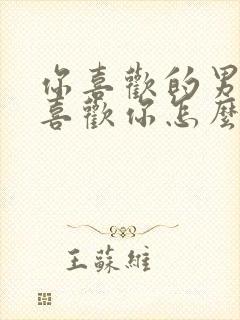 你喜歡的男
喜歡你怎麼
王蘇維